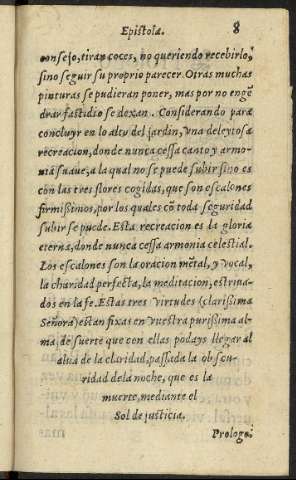 Epistola. 8
consejo, tiran coces, no queriendo recebirlo,
sino seguir su proprio parecer. Otras muchas
pinturas se pudieran poner, mas por no engẽ
drar fastidio se dexan. Considerando para
concluyr en lo alto del jardin, vna deleytosa
recreacion, donde nunca cessa canto y armo-
nia suaue, a la qual no se puede subir sino es
con las tres flores cogidas, que son escalones
firmissimos, por los quales cõ toda seguridad
subir se puede. Esta recreacion es la gloria
eterna, donde nunca cessa armonia celestial.
Los escalones son la oracion mẽtal, y vocal,
la charidad perfecta, la meditacion, estriua-
dos en la fe. Estas tres virtudes (clarissima
Señora) estan fixas en vuestra purissima al-
ma, de suerte que con ellas podays llegar al
alua de la claridad, passada la obscu-
ridad dela noche, que es la
muerte, mediante el
Sol de justicia.
Prologo